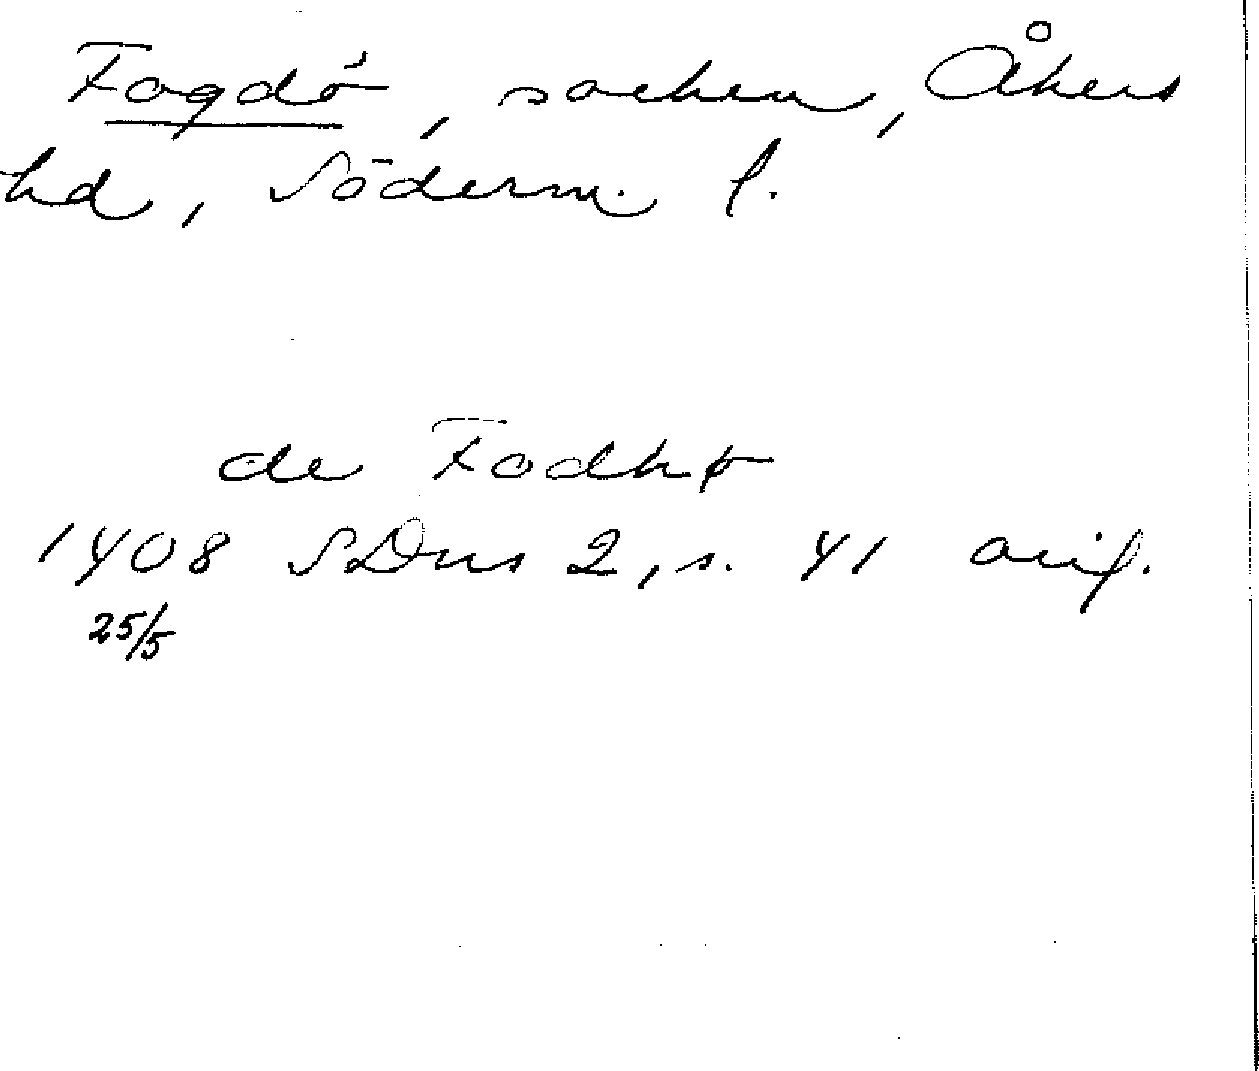 Fogdö, socken, Åkers
hd, Söderm. l.
de Fodhø
1408 SDns 2, s. 41 orig.
25/5